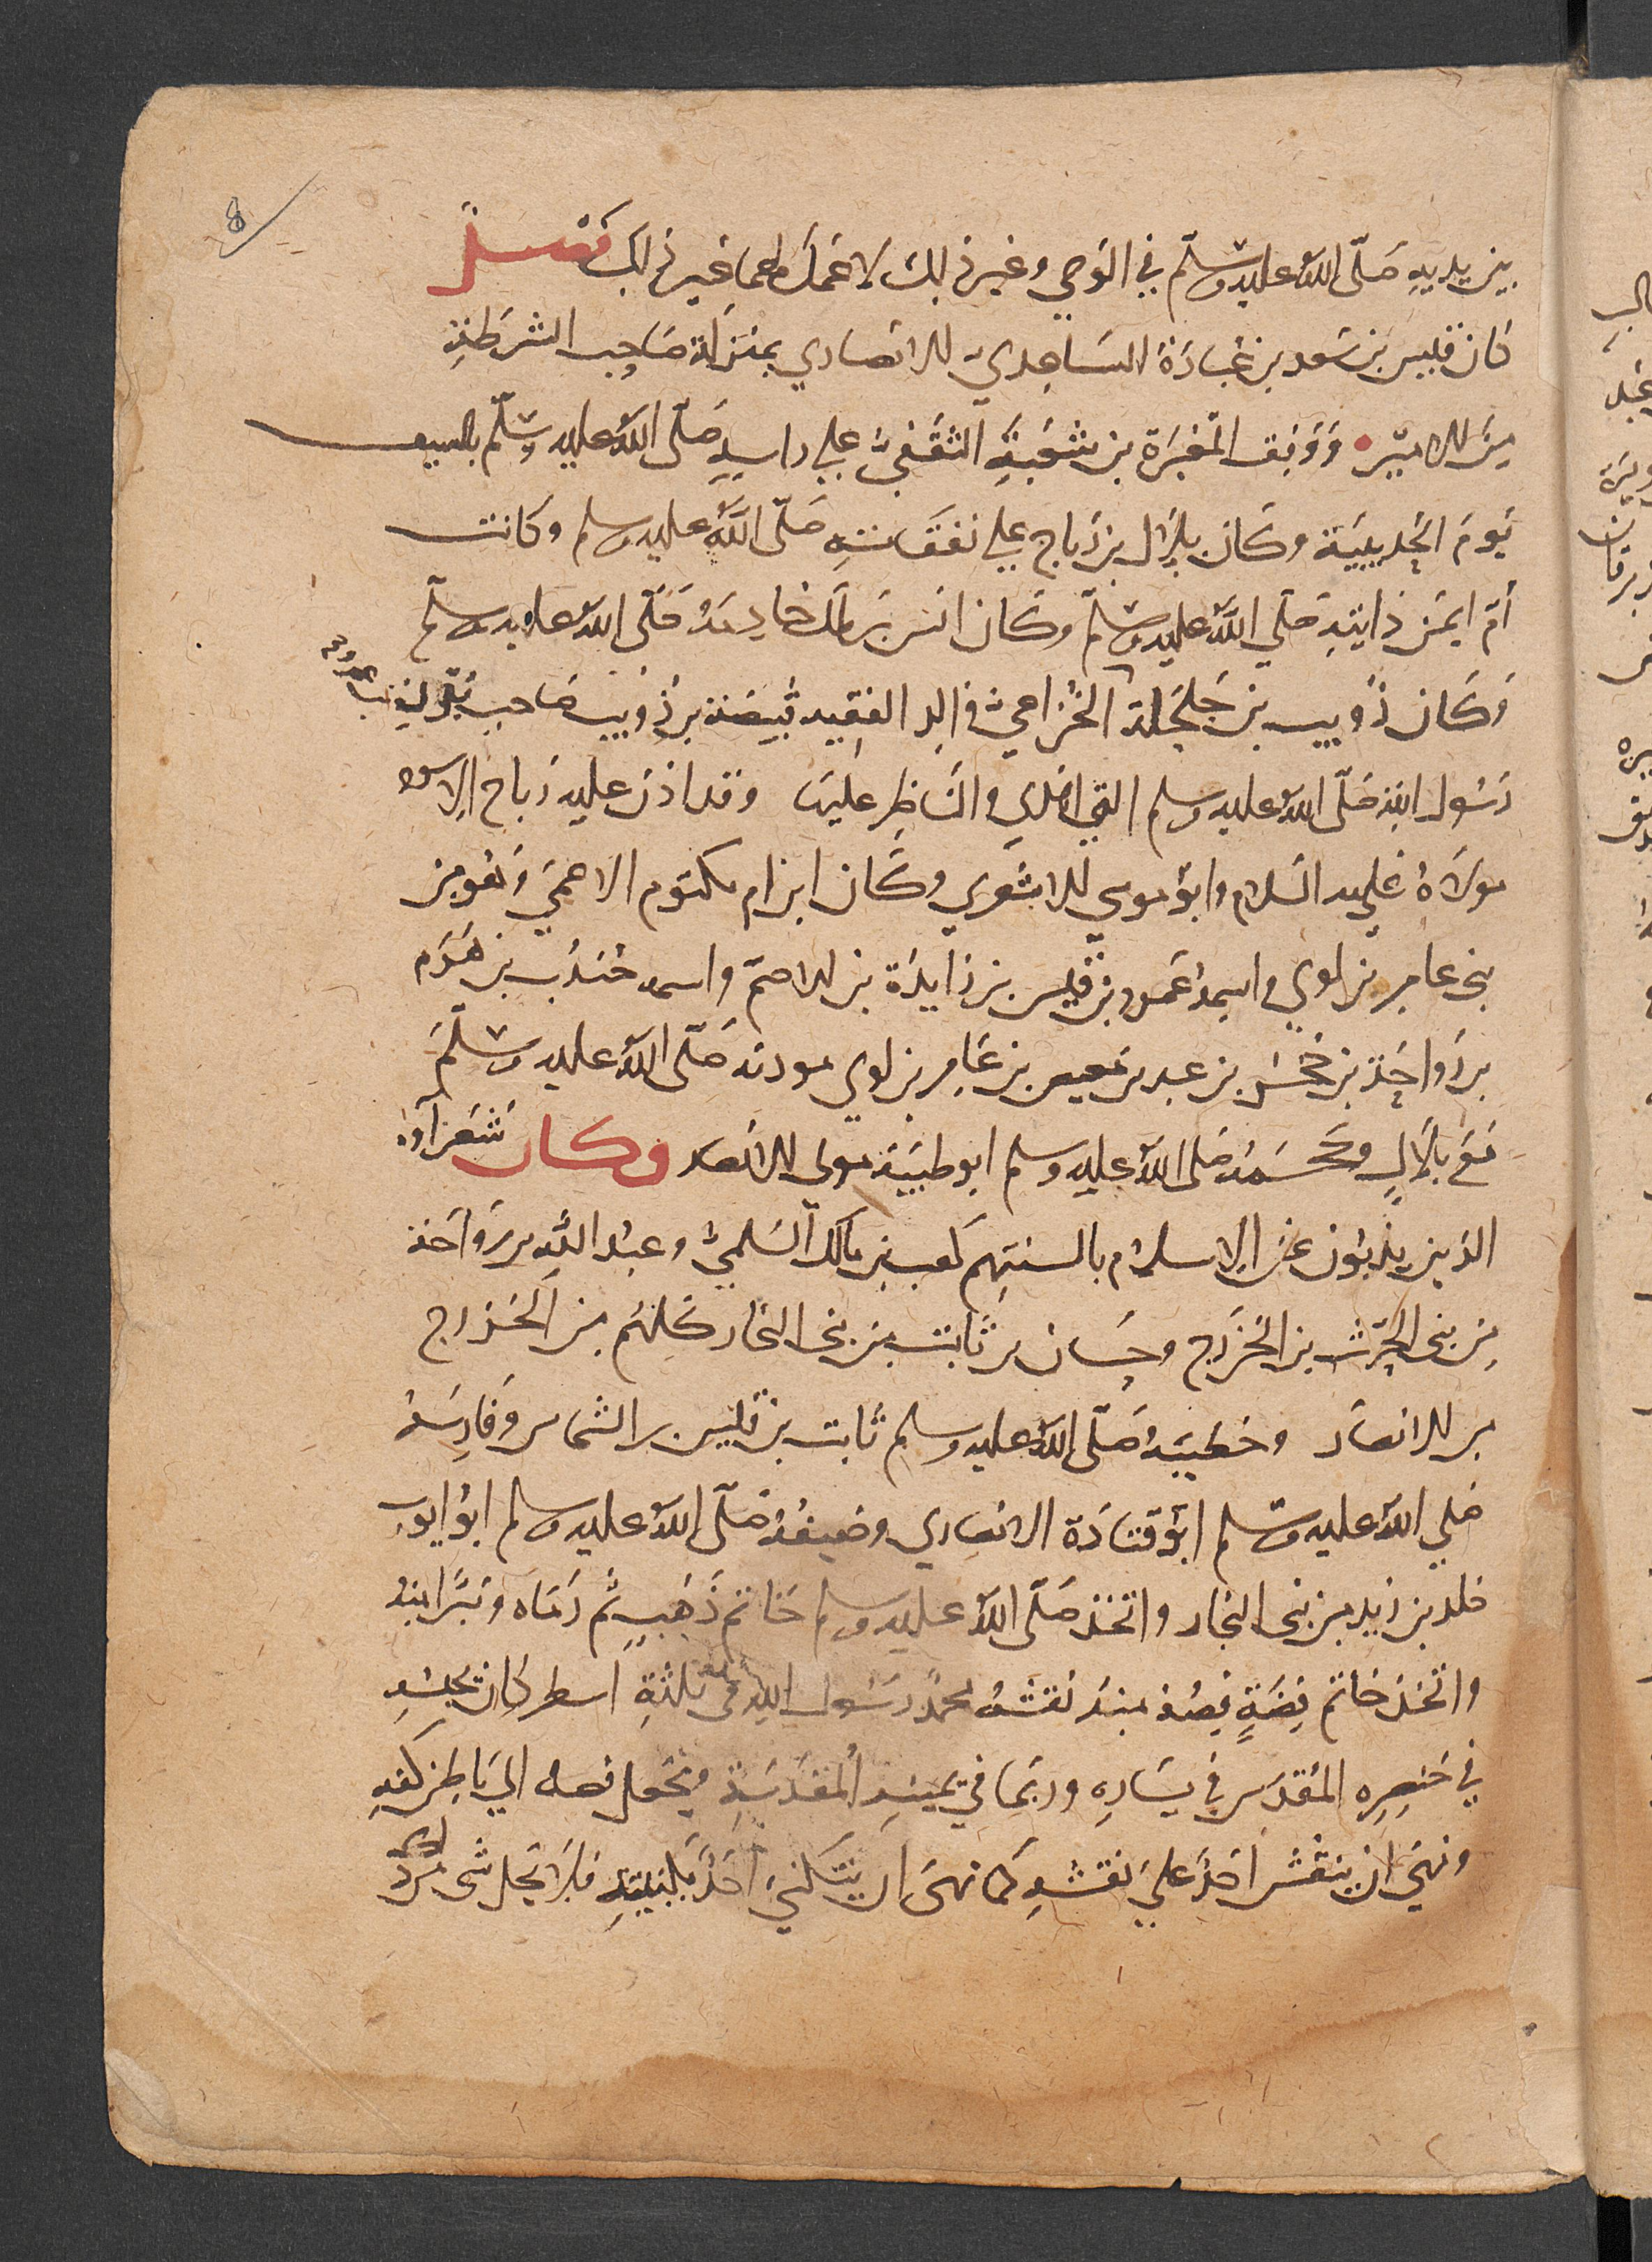 8
بين يديه صَلّى اللهُ عليه وسلّم في الوَحي وغير ذلك لا عَمَلَ لهما غير ذلك فصل
كان قيس بن سَعد بن عُبادَة السَاعِدي الانصاري بمنزلة صَاحِب الشرطَةِ
مِنَ الاميرِ وَوَقف المغيَرة بن شعبَةَ الثقَفيُ علي راسِهِ صَلّى اللهُ عليه وسلّم بالسيف
يَومَ الحُديبيَة وكان بِلال بن رَباح علي نفقَاتِه صَلّى اللهُ عليه وسلم وكانت
أمّ ايمَن دايتِه صَلّي اللهُ عليه وسلّم وكان انس بن مالك خادِمَهُ صَلّى اللهُ عليه وسلّم
وَكان ذُويب بن حَلحَلة الخزاعيُ والِد الفقِيه قبيصَة بن ذُويب صَاحب بُدْنِ
رَسُولِ اللهِ صَلّى اللهُ عليه وسلم التي اهدي والناظِر عليها وقد اذن عليه رَباح الاسود
مولاهُ عليه السلام وابو موسي الاشعري وكان ابن ام مكتوم الاعمَي وَهو من
بني عامر بن لوي واسمهُ عَمرو بن قيس بن زايدَة بن الاصمّ واسمه جُندُب بن هَرَم
بن رَواحَة بن حُجر بن عبد بن معيص بن عَامِر بن لوي موذنه صَلّى اللهُ عليه وسلّمَ
مَعَ بلالٍ وحَجَمَهُ صَلى اللهُ عليه وسلم ابو طيبَة مولى الانصار وكان شعَراؤه
الذين يذبُون عن الاسلام بالسنتِهِم كَعب بن مالك السَلميُ وعبد اللهِ بن رَواحَة
مِن بني الحرث بن الخزرَج وحسَان بن ثابت من بني النجار كلهُم من الخزرج
من الانصَار وخطيبَهُ صَلّى اللهُ عليه وسلم ثابت بن قيس بن الشماس وَفارِسَهُ
صَلي اللهُ عليه وسلم ابو قتادَة الانصاري وضيفهُ صَلّى اللهُ عليه وسلم ابو ايوب
خلد بن زيد من بني النجار واتخذ صَلّى اللهُ عليه وسلم خاتم ذَهَبٍ ثم رَمَاه وتبَرا منه
واتخذ خاتم فِضةٍ فِصُهُ مِنهُ نقشهُ محمدٌ رَسُول اللهِ في ثلثةِ اسطر كان يحبسُهِ
في خنصِرِه المُقَدسِ في يسَارِه وربما في يمينِه المقَدسَةِ ويجعل فصه الي باطِن كفهِ
ونهي ان ينقش احَدٌ علي نقشهِ كما نهي ان يتكني احَدٌ بكنيتهِ فلا يحل شي من ذلك